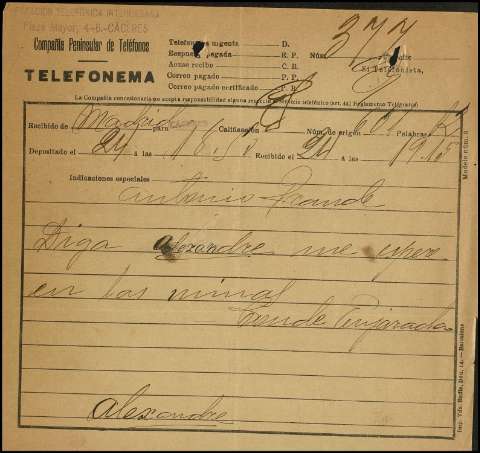 ESTACIÓN TELEFÓNICA INTERURBANA
Plaza Mayor, 4-6.-CÁCERES
Compañía Peninsular de Teléfonos
TELEFONEMA
Telefonema urgente D.
Respuesta pagada R. P.
Acuse recibo C. R.
Correo pagado P. P.
Correo pagado certificado P. R.
Núm. 377
El Telefonista,
La Compañía concesionaria no acepta responsabilidad alguna respecto al servicio telefónico (art. del Reglamento Telégrafos)
Recibido de Madrid para Calificación Núm. de origen Palabras
Depositado el 24 á las Recibido el 24 á las 19.15
Indicaciones especiales
Antonio Grande
Diga alexandre me espere
en las minas
alexandre
Modelo núm. 3
Imp. Vda. Badía, Dou, 14.—Barcelona